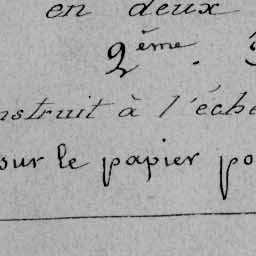 en deux
2ème.
nstruit à l'éche
sur le papier po